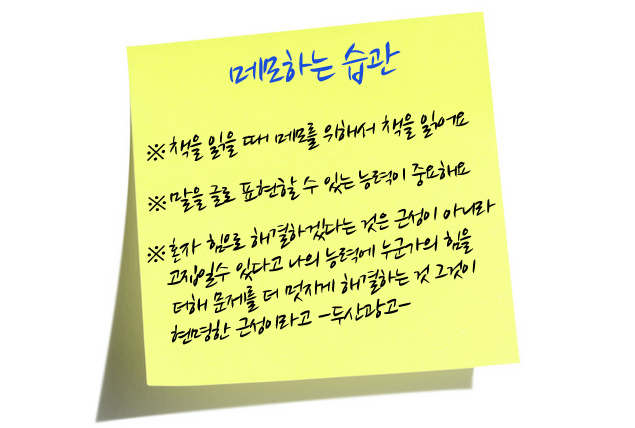 메모하는 습관
※책을 읽을 때 메모를 위해서 책을 읽어요
※말을 글로 표현할 수 있는 능력이 중요해요
※혼자 힘으로 해결하겠다는 것은 근성이 아니라
고집일수 있다고 나의 능력에 누군가의 힘을
더해 문제를 더 멋지게 해결하는 것 그것이
현명한 근성이라고 -두산광고-